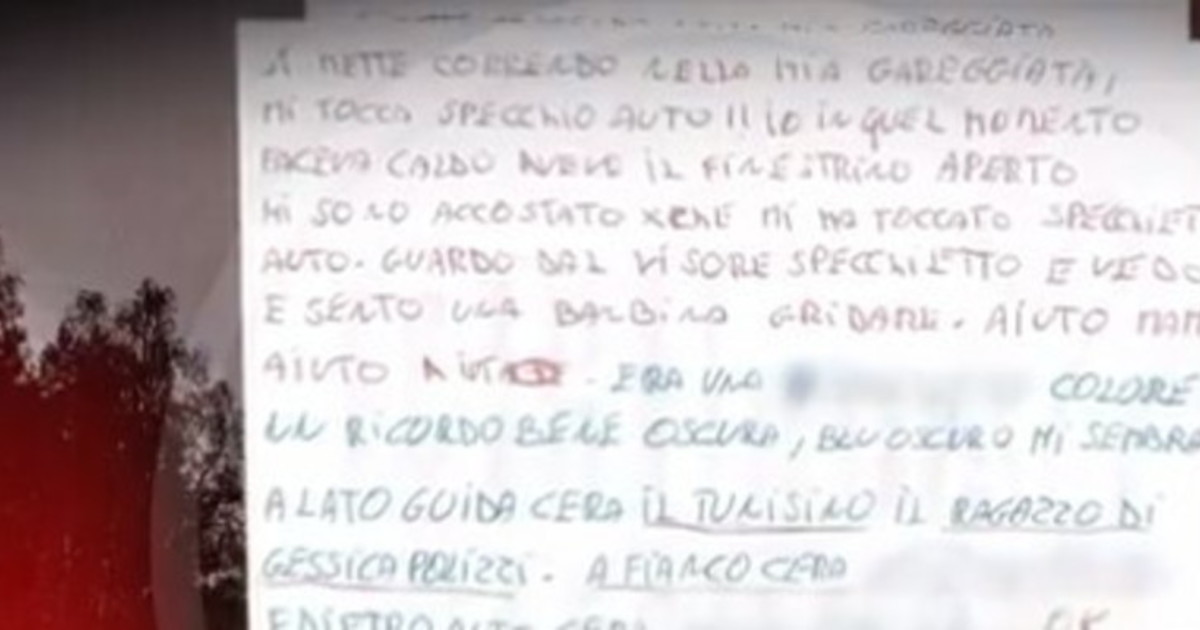 GAREGGIATA
A METTE CORRENDO NELLA MIA GAREGGIATA,
MI TOCCA SPECCHIO AUTO II io in quel MOMENTO
FACEVA CALDO AVEVO IL FINESTRINO APERTO
MI SONO ACCOSTATO XCHE MI HA TOCCATO SPECCHIET
AUTO. GUARDO DAL VISORE SPECCHIETTO E VEDO
E SENTO UNA BAMBINA GRIDARE. AIUTO MAM
AIUTO AIUTO. ERA UNA COLORE
UN RICORDO BENE OSCURA, BLU OSCURO MI SEMBRA
A LATO GUIDA CERA IL TUNISINO IL RAGAZZO DI
GESSICA PULIZZI. A FIANCO CERA
E DIETRO AUTO CERA OK